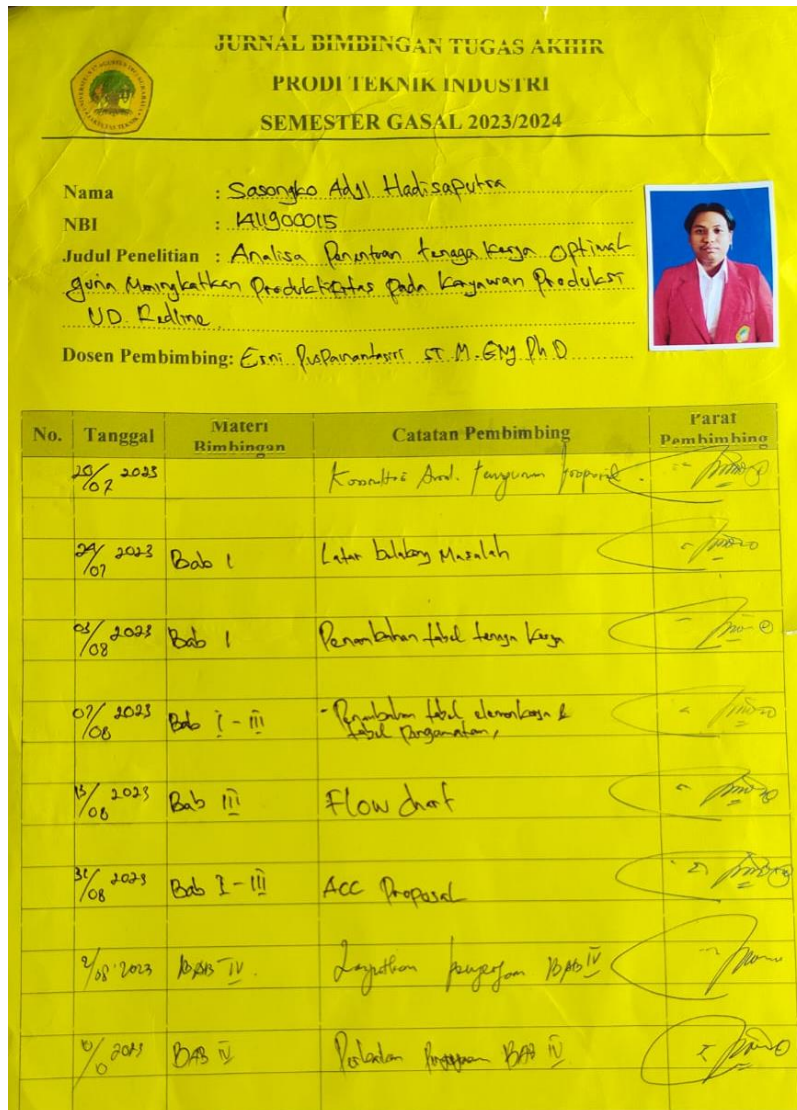 JURNAL BIMBINGAN TUGAS AKHIR
PRODI TEKNIK INDUSTRI
SEMESTER GASAL 2023/2024
Nama : Sasongko Adji Hadisaputra
NBI : 1411900015
Judul Penelitian : Analisa Penentuan tenaga kerja Optimal
guna Meningkatkan Produktifitas pada Karyawan Produksi
UD. Redline
Dosen Pembimbing: Erni Puspanantasari ST M.ENg Ph D
No. Tanggal Materi Bimbingan Catatan Pembimbing Parat Pembimbing
2023
24/07 2023 Bab I Latar belakang Masalah
03/08 2023 Bab I Penambahan tabel tenaga kerja
07/08 2023 Bab I - III - Penambahan tabel elemen kerja &
tabel Pengamatan,
13/08 2023 Bab III Flow chart
31/08 2023 Bab I - III ACC Proposal
2023 BAB IV. BAB IV
2023 BAB IV BAB IV